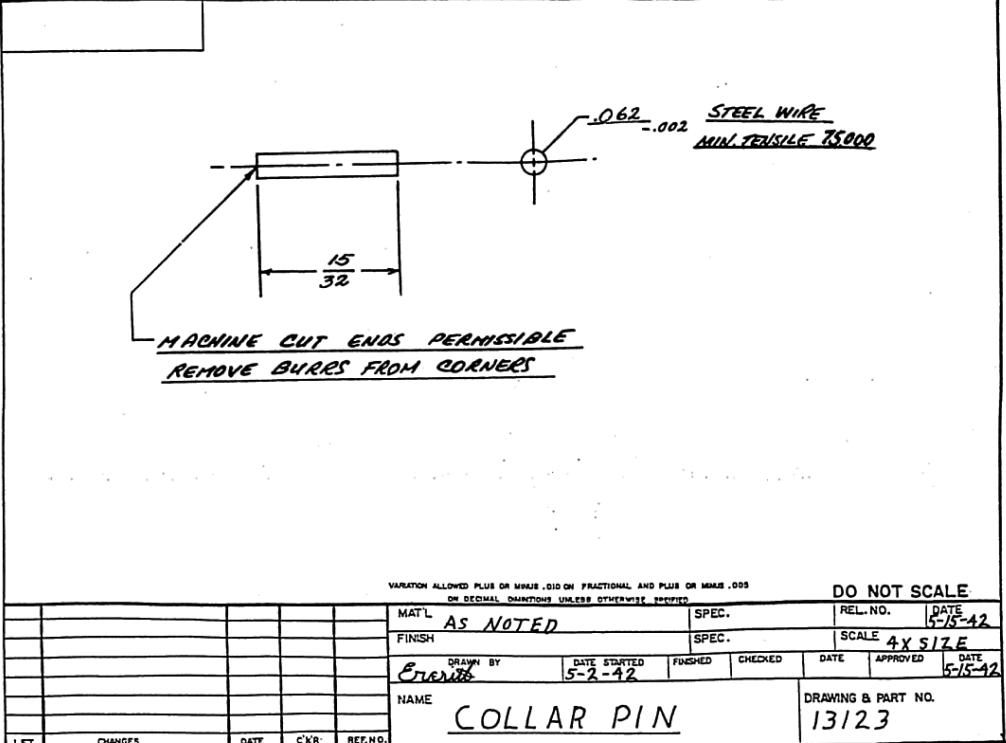 .062 -.002 STEEL WIRE
MIN. TENSILE 75,000
15
32
MACHINE CUT ENDS PERMISSIBLE
REMOVE BURRS FROM CORNERS
VARIATION ALLOWED PLUS OR MINUS .010 ON FRACTIONAL AND PLUS OR MINUS .005
ON DECIMAL UNLESS OTHERWISE SPECIFIED
DO NOT SCALE
MAT'L AS NOTED SPEC. REL. NO. DATE 5-15-42
FINISH SPEC. SCALE 4X SIZE
DRAWN BY DATE STARTED 5-2-42 FINISHED CHECKED DATE APPROVED DATE 5-15-42
NAME COLLAR PIN
DRAWING & PART NO. 13123
LET. CHANGES DATE C'K'R. REF. NO.